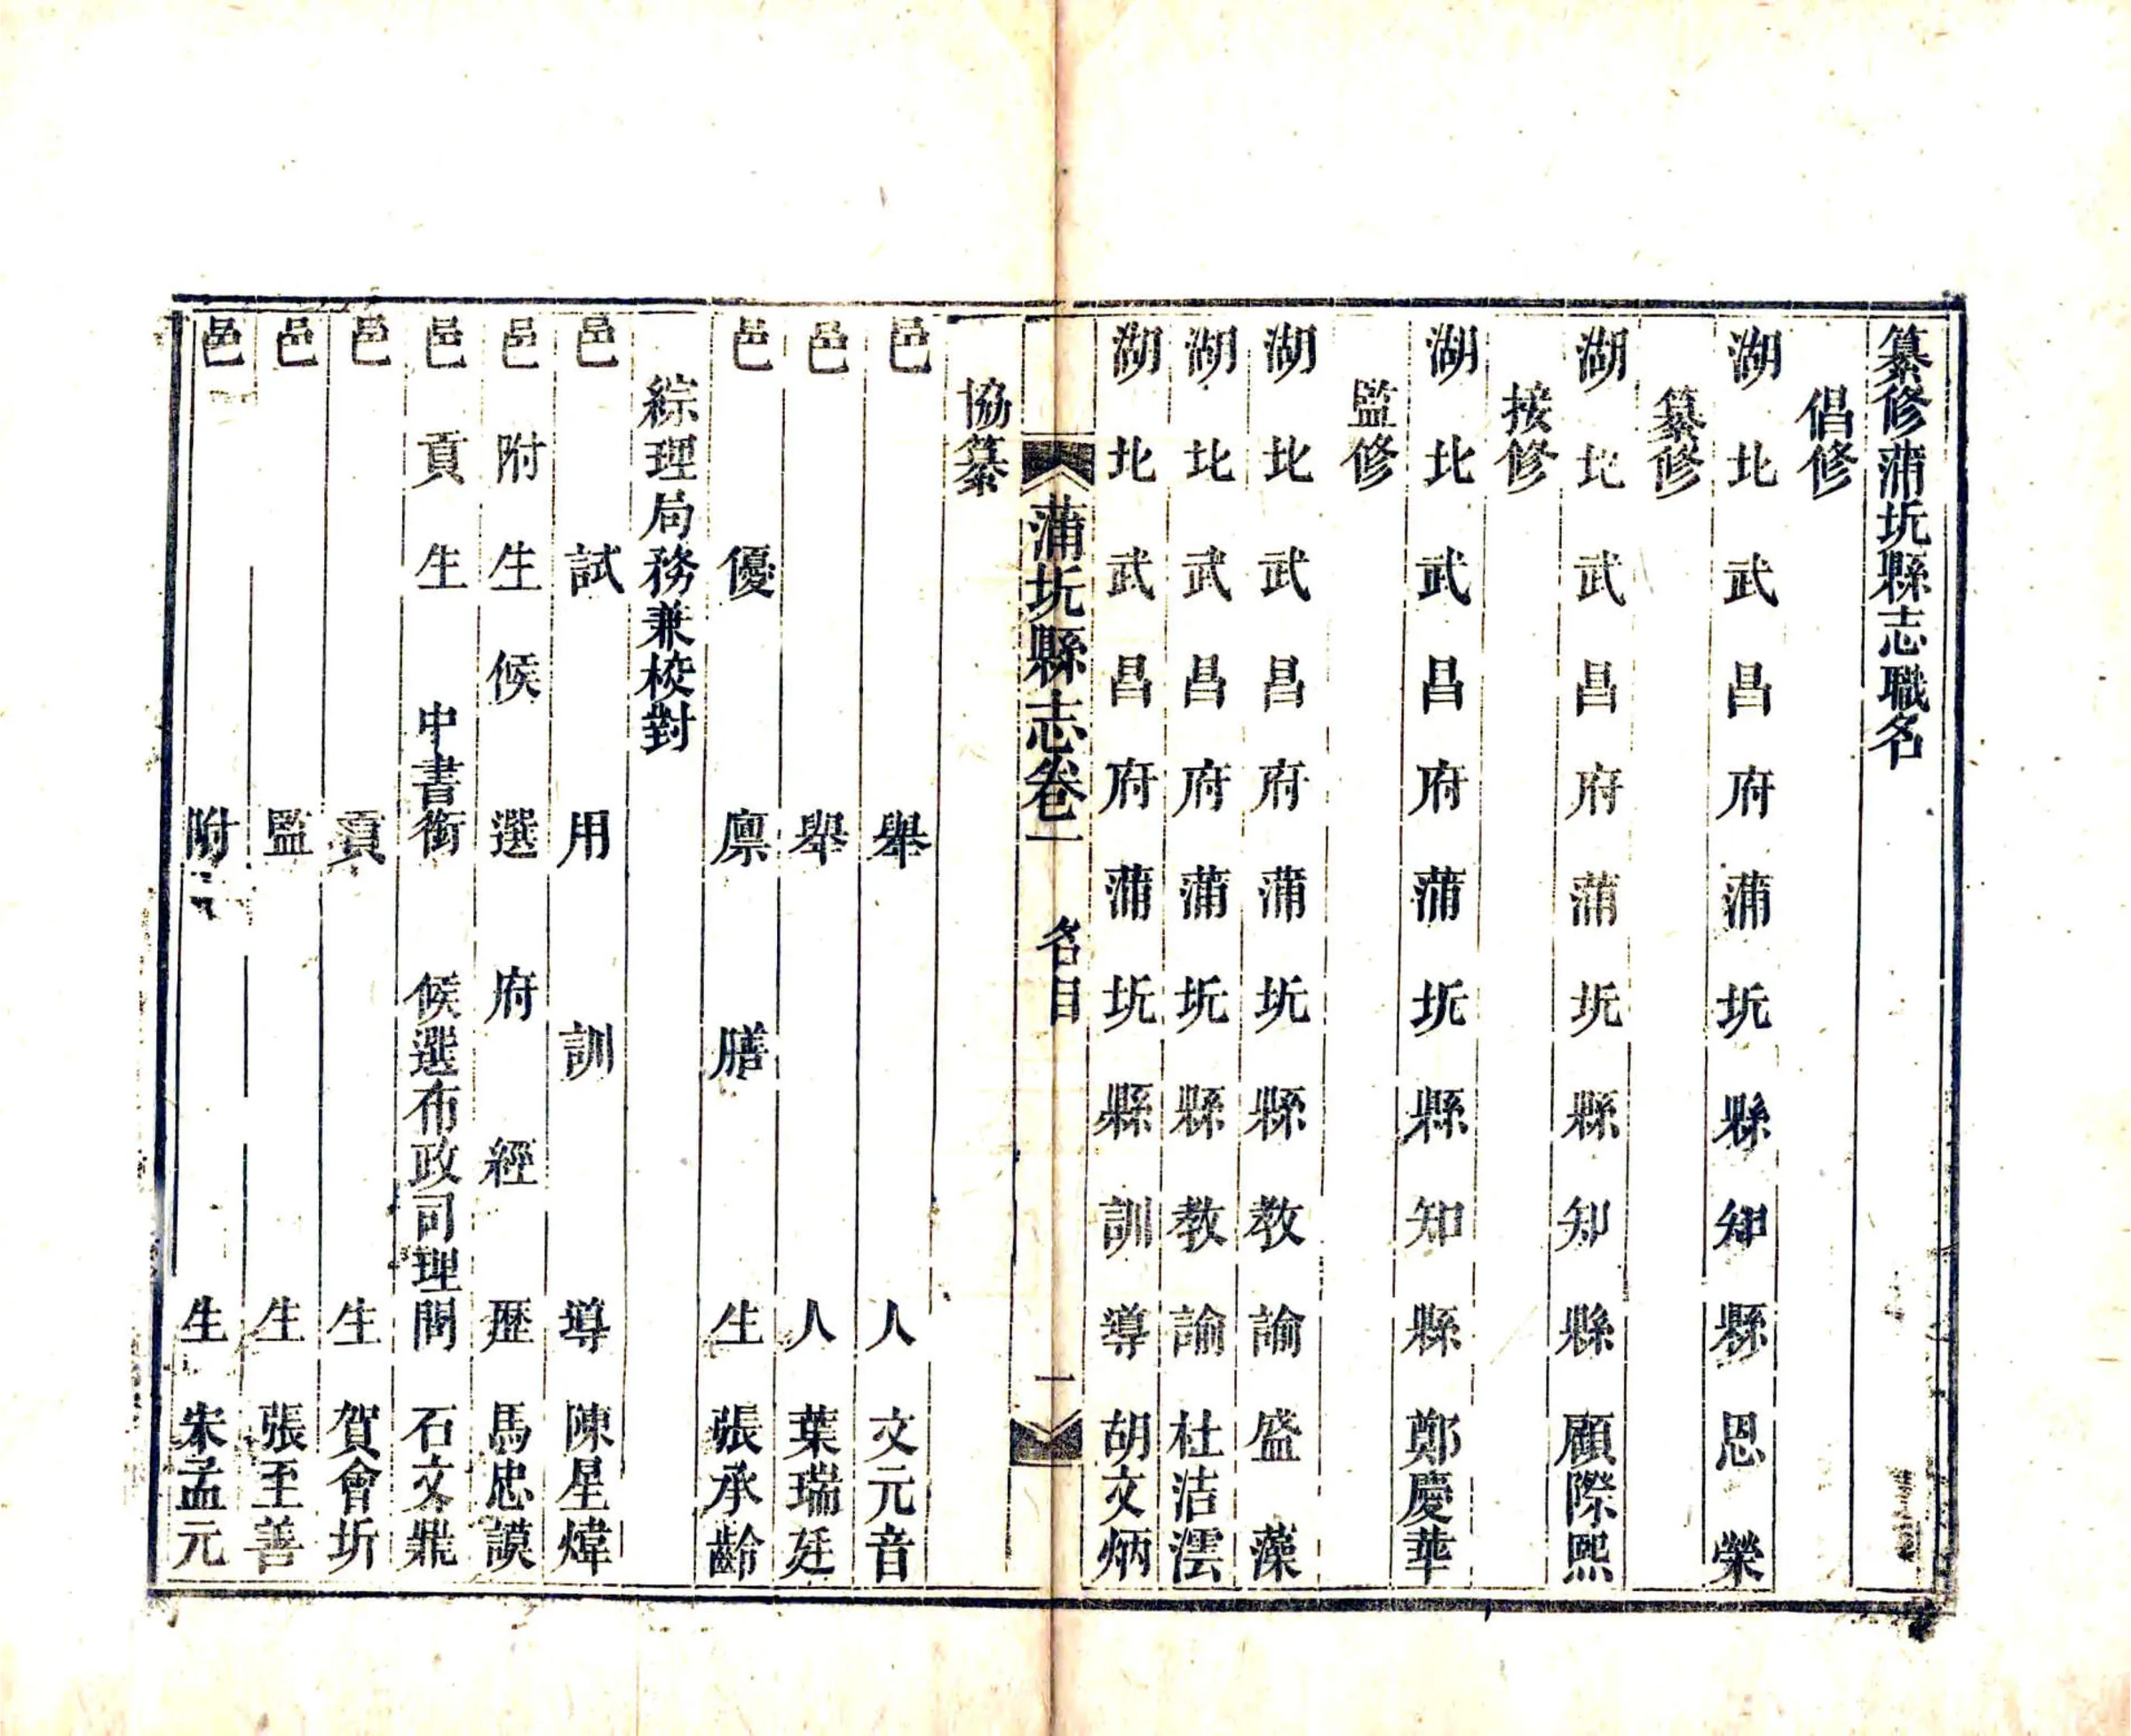 纂修蒲圻縣志職名
倡修
湖北武昌府蒲圻縣知縣恩榮
纂修
湖北武昌府蒲圻縣知縣顧際熙
接修
湖北武昌府蒲圻縣知縣鄭慶華
監修
湖北武昌府蒲圻縣教諭盛藻
湖北武昌府蒲圻縣教諭杜洁澐
湖北武昌府蒲圻縣訓導胡文炳
蒲圻縣志卷一 名目 一
協纂
邑舉人文元音
邑舉人葉瑞廷
邑優廩膳生張承齡
綜理局務兼校對
邑試用訓導陳星煒
邑附生候選府經歷馬忠謨
邑貢生中書銜候選布政司理問石文鼎
邑貢生賀會圻
邑監生張至善
邑附生宋孟元